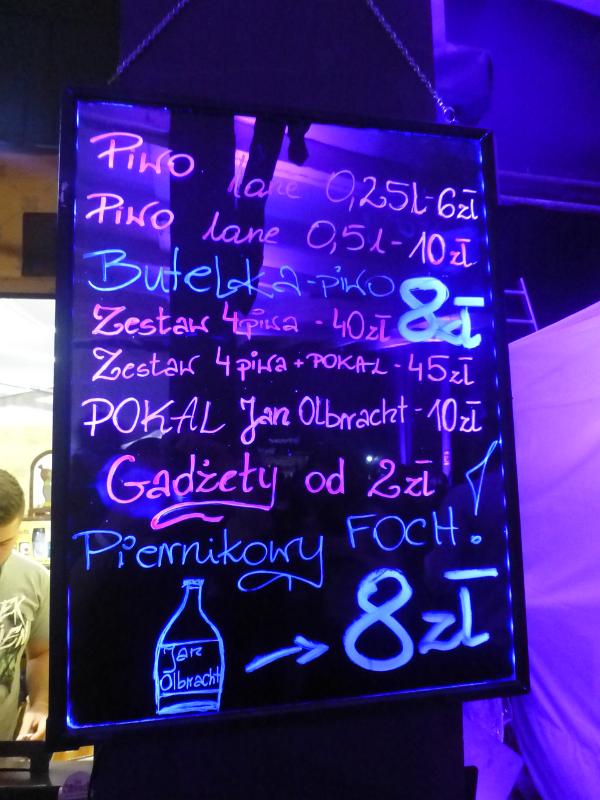 Piwo lane 0,25l-6zł
Piwo lane 0,5l-10zł
Butelka-piwo 8zł
Zestaw 4piwa - 40zł
Zestaw 4piwa + POKAL - 45zł
POKAL Jan Olbracht - 10zł
Gadżety od 2zł
Piernikowy FOCH!
Jan
Olbracht
→ 8zł